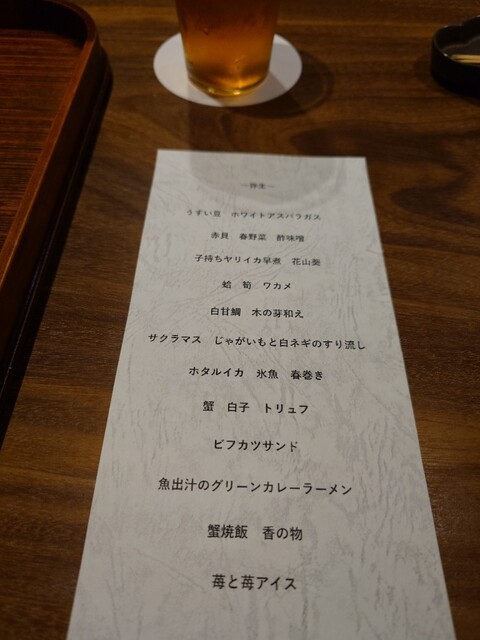 ～弥生～
うすい豆　ホワイトアスパラガス
赤貝　春野菜　酢味噌
子持ちヤリイカ早煮　花山葵
蛤　筍　ワカメ
白甘鯛　木の芽和え
サクラマス　じゃがいもと白ネギのすり流し
ホタルイカ　氷魚　春巻き
蟹　白子　トリュフ
ビフカツサンド
魚出汁のグリーンカレーラーメン
蟹焼飯　香の物
苺と苺アイス